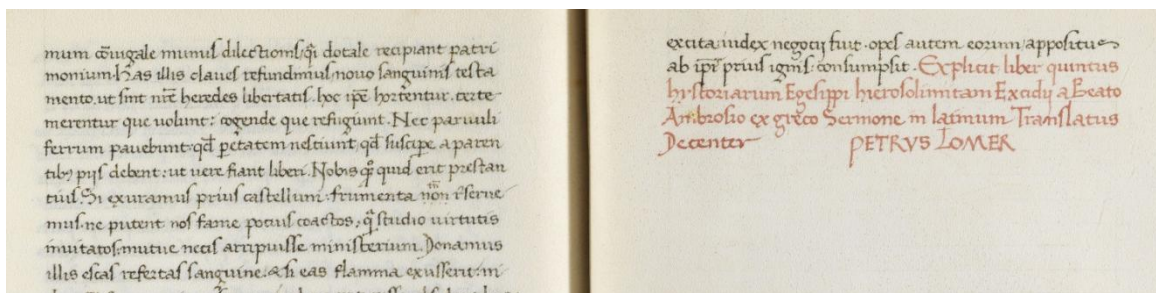 mum cōiugale munus dilectionis, q̄ dotale recipiant patri
monium. Has illis claues refundimus, nouo sanguinis testa
mento. ut sint nr̄e heredes libertatis. hoc ip̄e hortentur. certe
merentur que volunt: cogende que refugiunt. Nec paruuli
ferrum pauebunt qd̄ p̄ etatem nesciunt, qd̄ suscipe a paren
tib; pijs debent: ut vere fiant liberi. Nobis quid erit prestan
tius. Si exuramus prius castellum. frumenta non reserue
mus. ne putent nos fame potius coactos, q̄ studio virtutis
inuitatos, mutue necis arripuisse ministerium. Donamus
illis escas refertas sanguine. & si eas flamma exusserit. in
excita iudex negocij fuit. opes autem eorum appositus
ab ip̄is prius ignis consumpsit. Explicit liber quintus
historiarum Egesippi hierosolimitam Excidij a Beato
Ambrosio ex greco Sermone in latinum Translatus
Decenter PETRVS LOMER